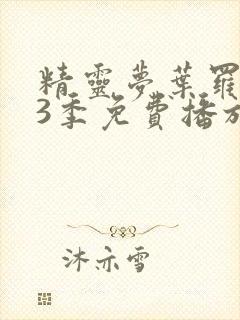 精靈夢葉羅
3季免費播放
沐亦雪